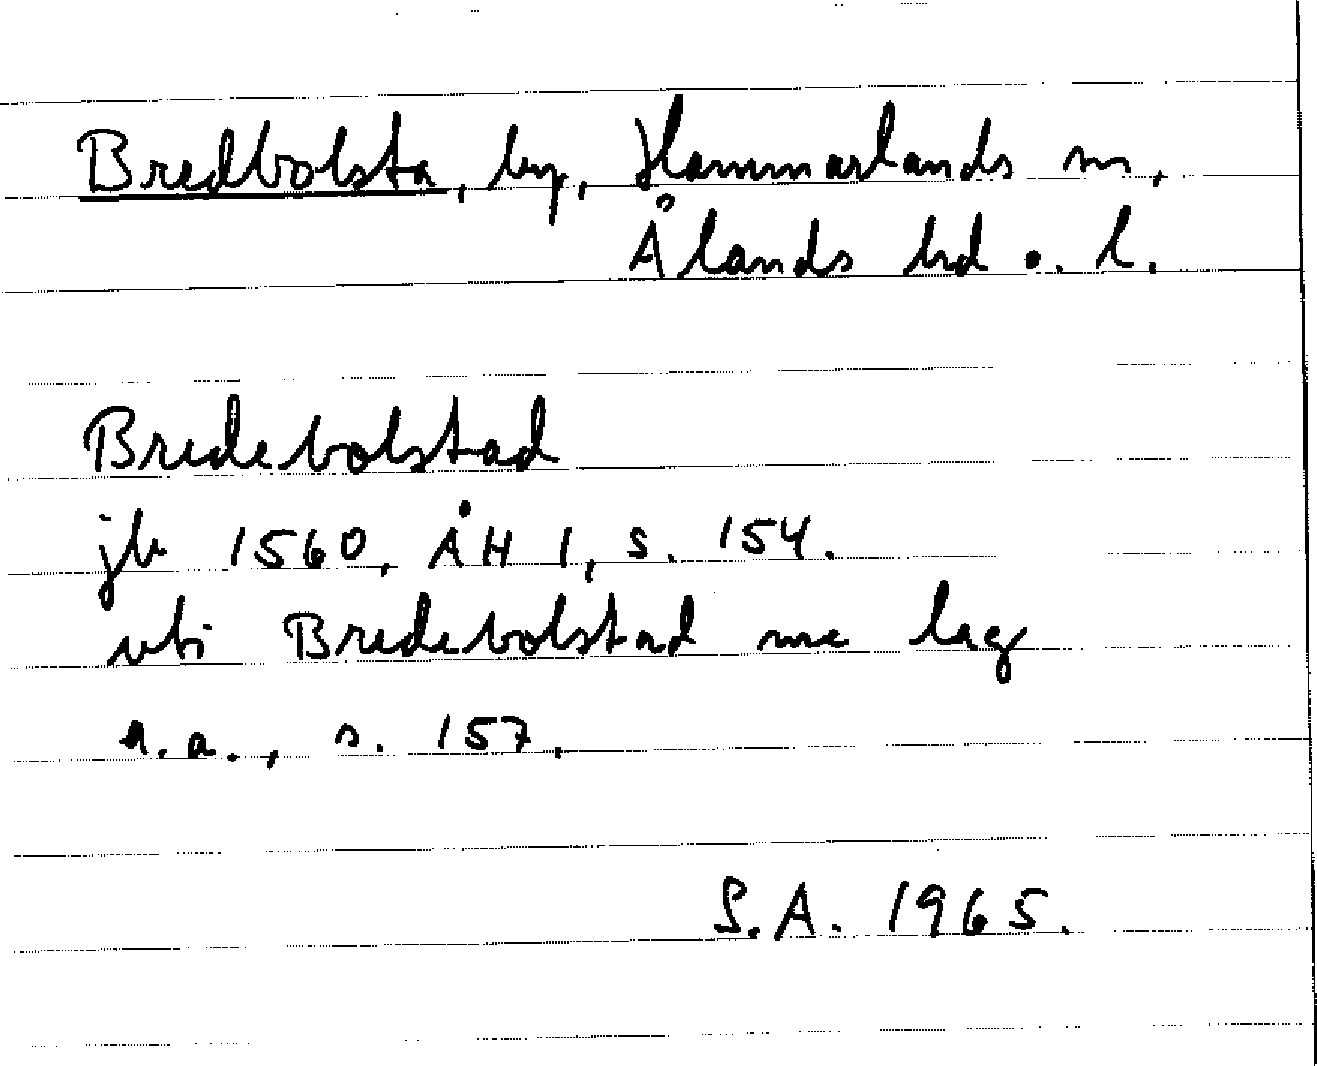 Bredbolsta, by, Hammarlands sn,
Ålands hd o. l.
Bredebolstad
jb 1560, ÅH 1, s. 154.
vti Bredebolstad me lag
a.a., s. 157.
S.A. 1965.